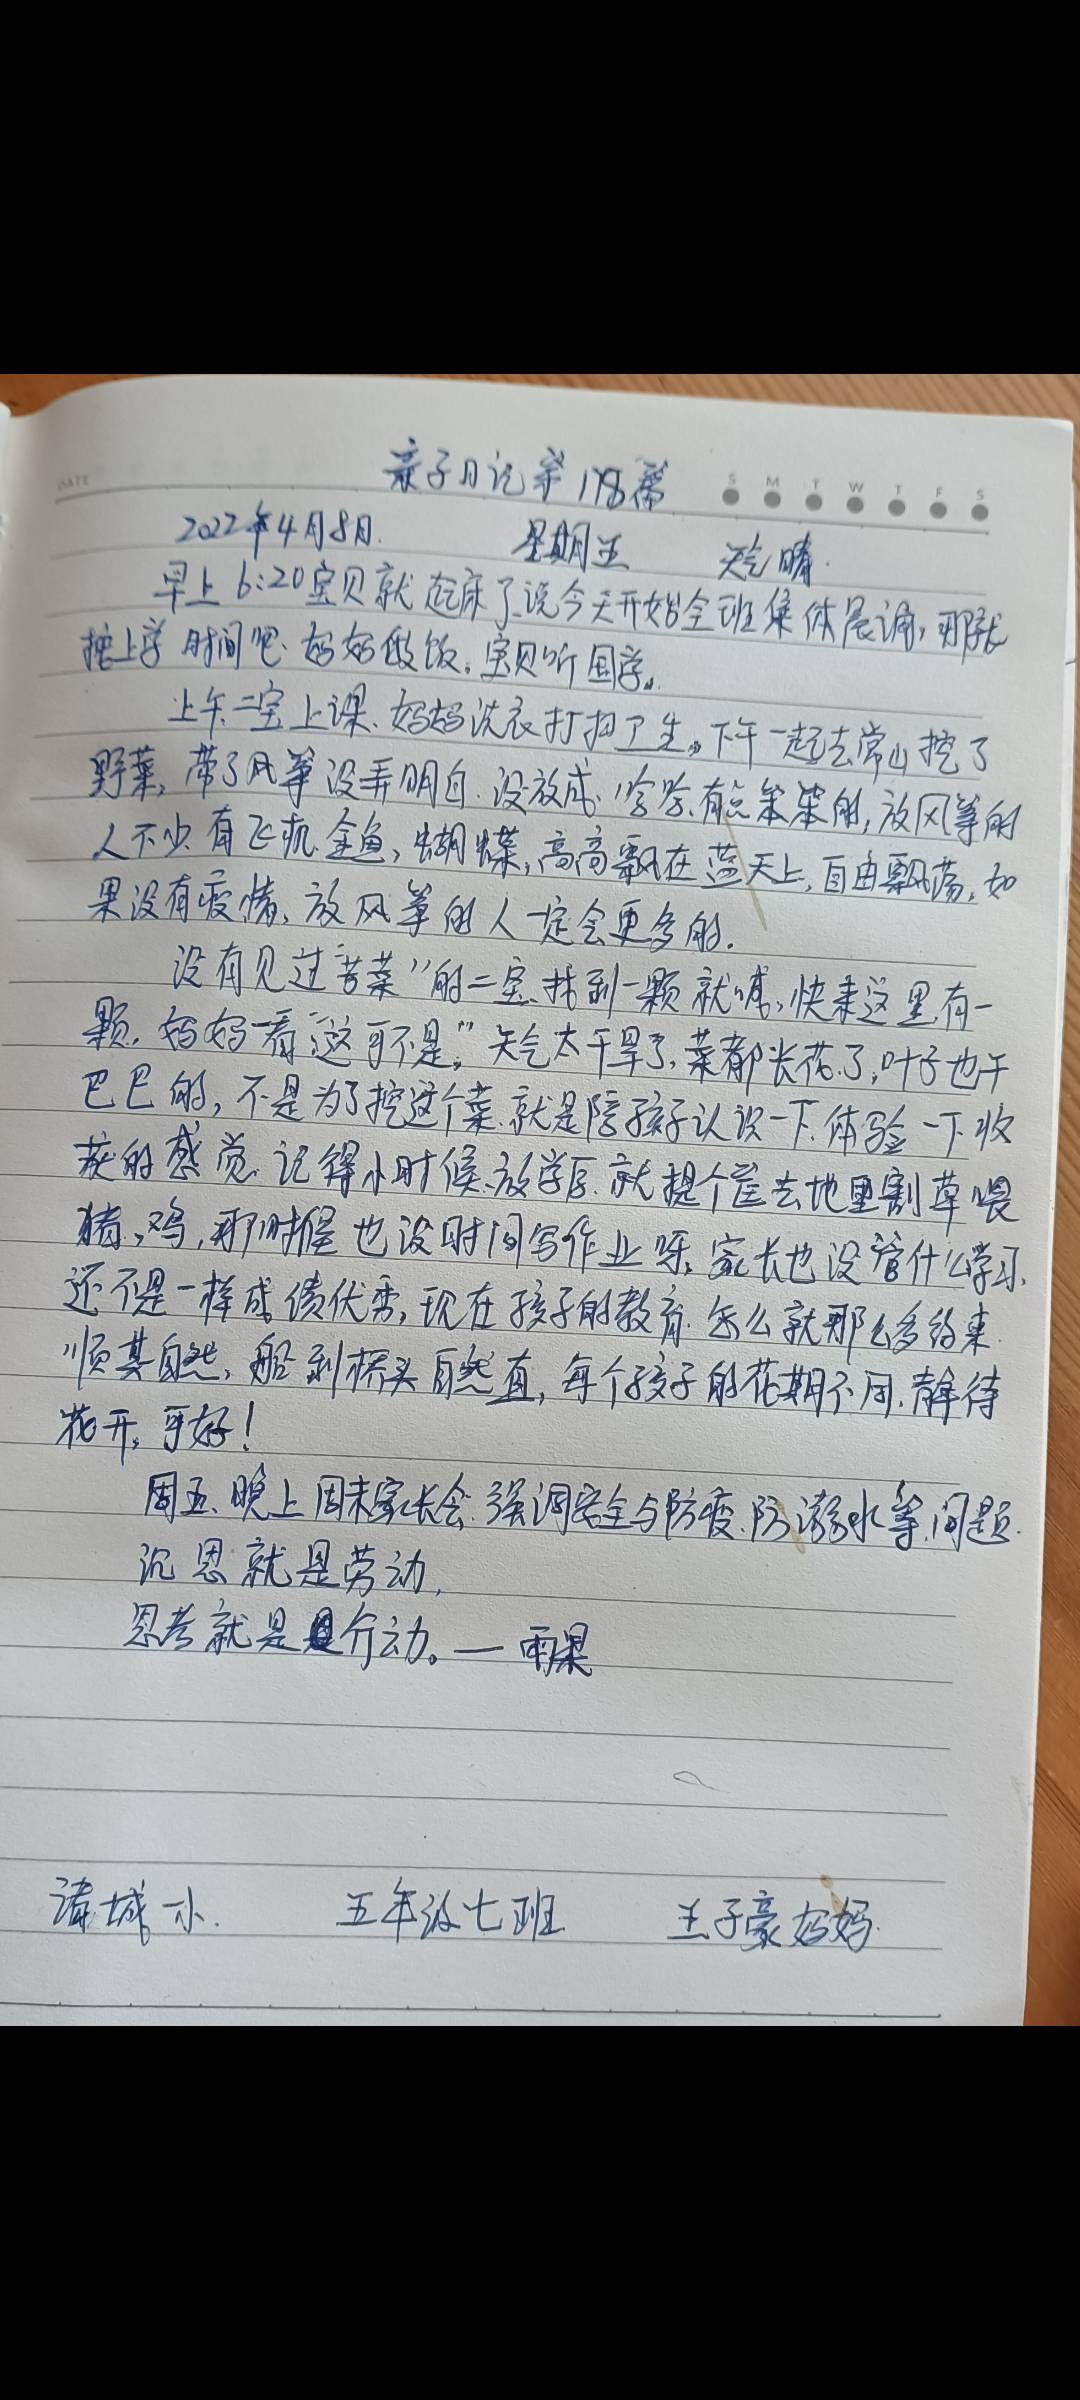 DATE
亲子日记第178篇
S M T W T F S
2022年4月8日. 星期五 天气晴.
早上6:20宝贝就起床了、说今天开始全班集体晨诵,那就
按上学时间吧.妈妈做饭,宝贝听国学。
上午二宝上课、妈妈洗衣打扫卫生。下午一起去常山挖了
野菜,带了风筝没弄明白.没放成.哈哈.有点笨笨的,放风筝的
人不少.有飞机.金鱼,蝴蝶,高高飘在蓝天上,自由飘荡,如
果没有疫情,放风筝的人一定会更多的.
没有见过“苦菜”的二宝、找到一颗就喊,快来这里,有一
颗.妈妈一看“这可不是,”天气太干旱了,菜都长花了,叶子也干
巴巴的,不是为了挖这个菜.就是陪孩子认识一下.体验一下收
获的感觉.记得小时候,放学后.就提个筐去地里割草喂
猪,鸡,那时候也没时间写作业呀,家长也没管什么学习.
还不是一样成绩优秀,现在孩子的教育.怎么就那么多约束.
“顺其自然,船到桥头自然直,每个孩子的花期不同.静待
花开,乎好!
周五、晚上周末家长会.强调安全与防疫.防溺水等.问题.
沉思就是劳动,
思考就是行动。—雨果
诸城一小. 五年级七班 王子豪妈妈.